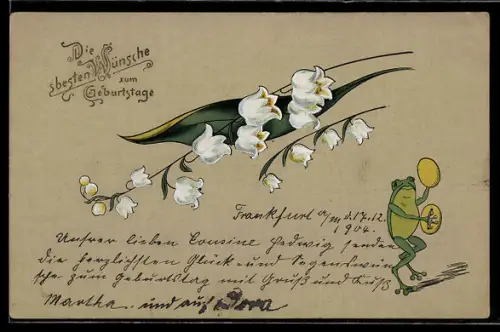 Die
besten Wünsche
zum
Geburtstage
Frankfurt a/m d. 17.12.
1904.
Unsrer lieben Cousine Hedwig senden
die herzlichsten Glück- und Segenswün
sche zum Geburtstag mit Gruß und Kuß
Martha und auch Dora